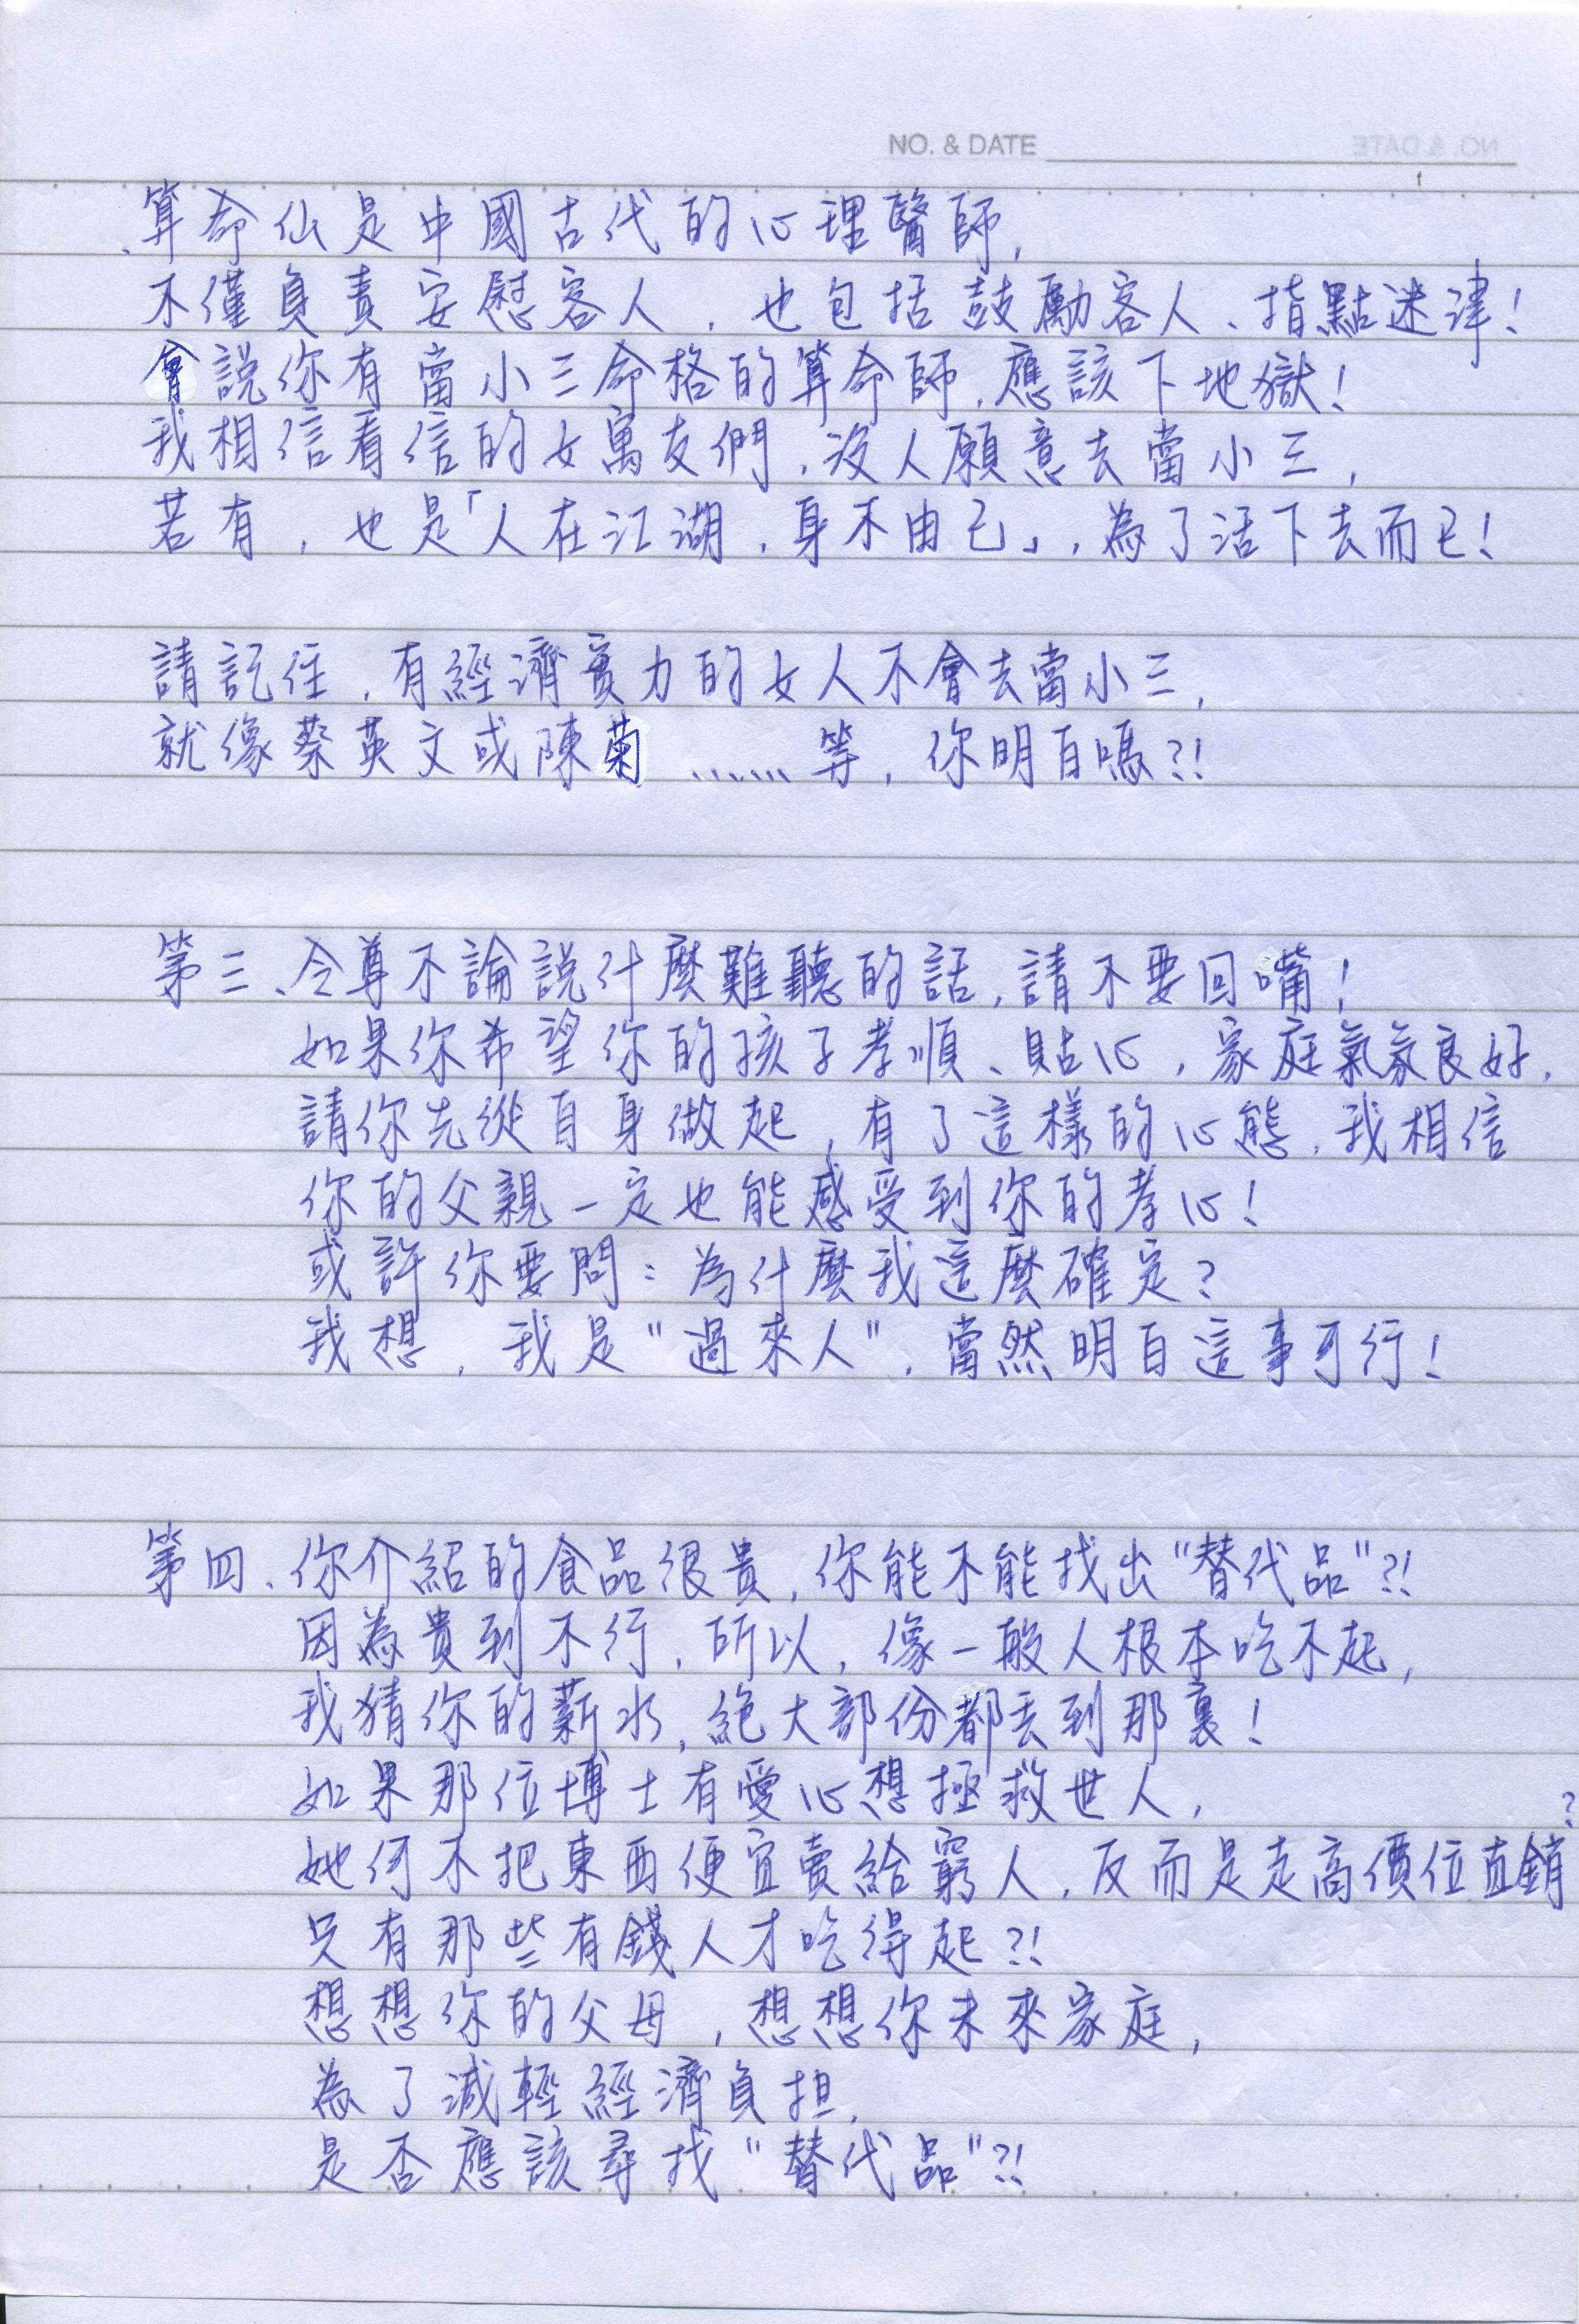 NO. & DATE
算命仙是中國古代的心理醫師,
不僅負責安慰客人，也包括鼓勵客人、指點迷津!
會說你有當小三命格的算命師，應該下地獄!
我相信看信的女萬友們，沒人願意去當小三,
若有，也是「人在江湖，身不由己」，為了活下去而已!
請記住，有經濟實力的女人不會去當小三,
就像蔡英文或陳菊……等，你明白嗎?!
第三、令尊不論說什麼難聽的話，請不要回嘴!
如果你希望你的孩子孝順、貼心，家庭氣氛良好,
請你先從自身做起，有了這樣的心態，我相信
你的父親一定也能感受到你的孝心!
或許你要問：為什麼我這麼確定?
我想，我是"過來人"，當然明白這事可行!
第四、你介紹的食品很貴，你能不能找出"替代品"?!
因為貴到不行，所以，像一般人根本吃不起,
我猜你的薪水，絕大部份都丟到那裏!
如果那位博士有愛心想拯救世人,
她何不把東西便宜賣給窮人，反而是走高價位直銷?
只有那些有錢人才吃得起?!
想想你的父母，想想你未來家庭,
為了減輕經濟負担,
是否應該尋找"替代品"?!